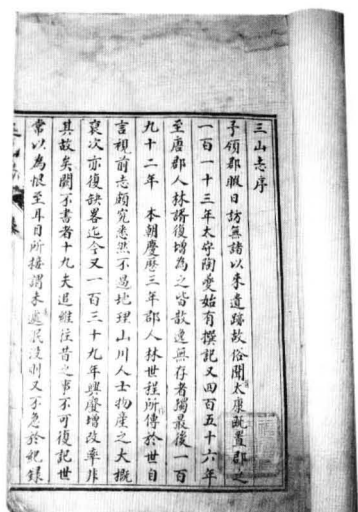 三山志序
予領郡暇日訪無諸以来遺跡故俗聞太康既置郡之
一百一十三年太守陶夔始有撰記又四百五十六年
至唐郡人林諝復增為之皆散逸無存者獨最後一百
九十二年 本朝慶曆三年郡人林世程所傳於世自
言視前志頗究悉然不過地理山川人士物產之大概
裒次亦復缺畧迄今又一百三十九年興廢增改率非
其故矣闕不書者十九夫追維往昔之事不可復記世
常以為恨至耳目所接謂未遽泯沒則又不急於紀録